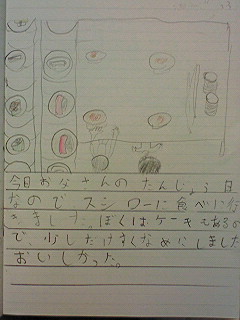 今日おなさんのたんじょう日
なのでスシローに食べに行
きました。ぼくはケーキもあるの
で、少しだけすくなめにしました
おいしかった。